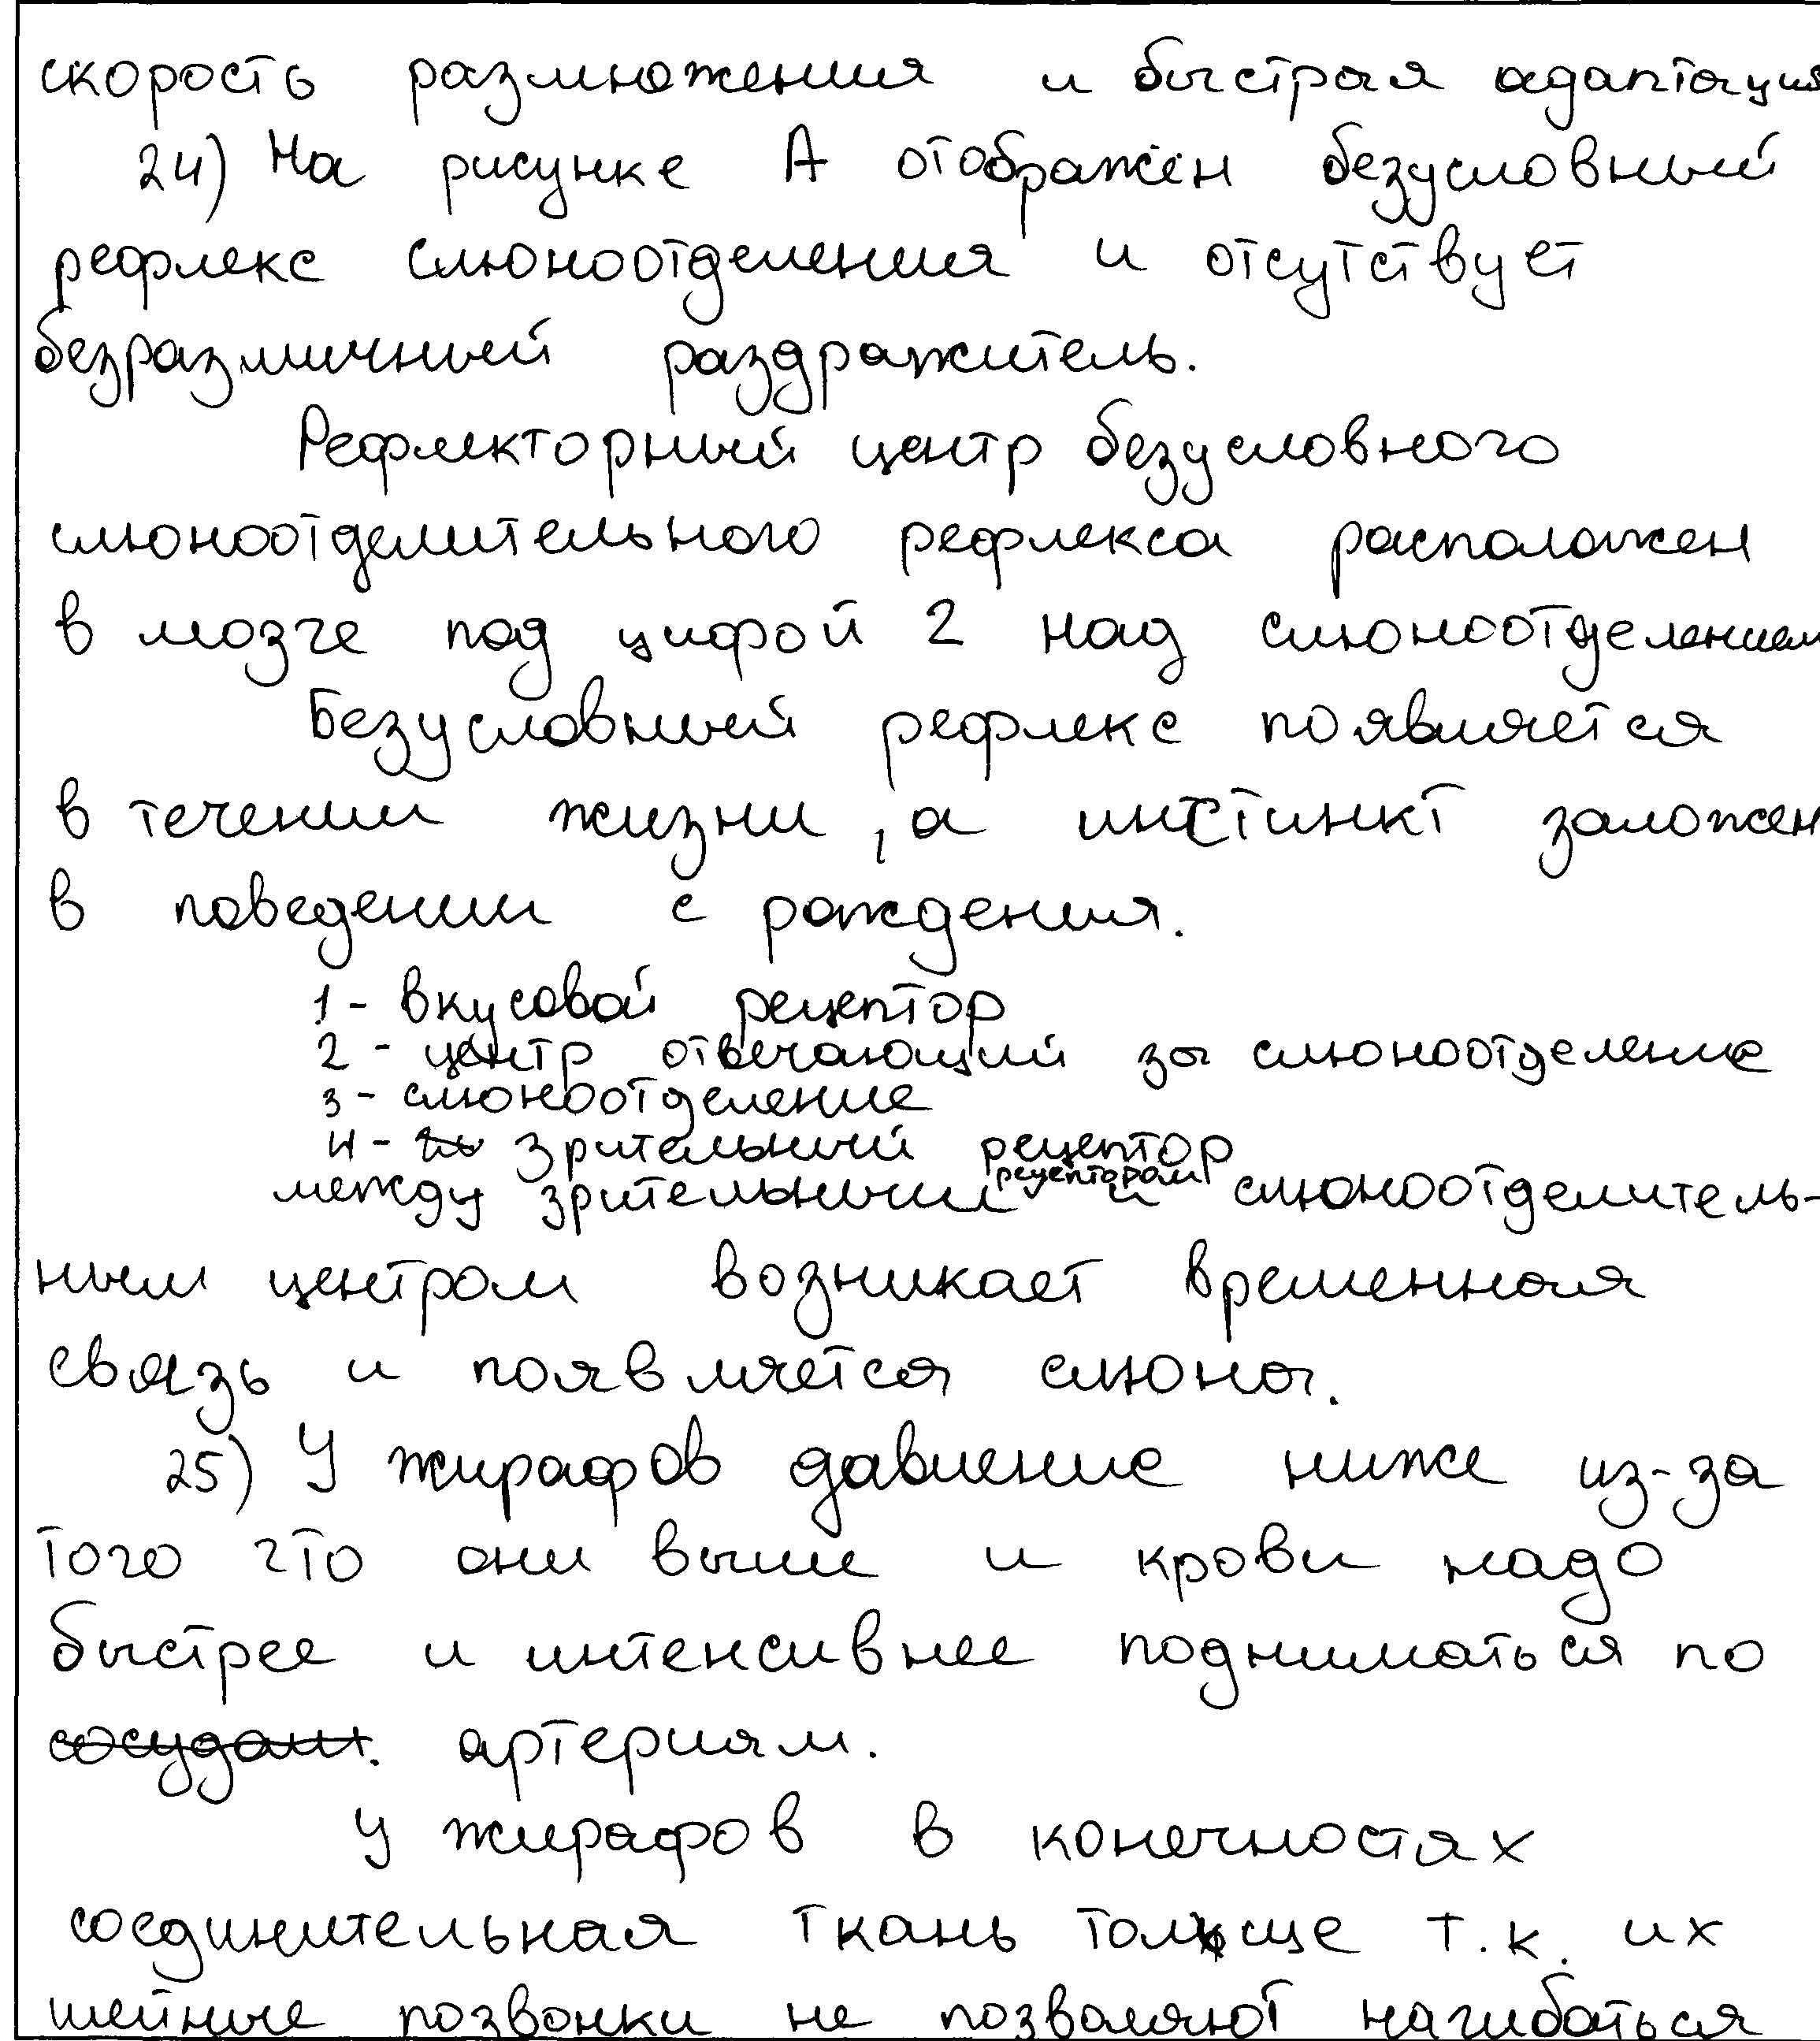 скорость размножения и быстрая адаптация
24) На рисунке А отображён безусловный
рефлекс слюноотделения и отсутствует
безразличный раздражитель.
Рефлекторный центр безусловного
слюноотделительного рефлекса расположен
в мозге под цифрой 2 над слюноотделением
Безусловный рефлекс появляется
в течении жизни, а инстинкт заложен
в поведении с рождения.
1 - вкусовой рецептор
2 - центр отвечающий за слюноотделение
3 - слюноотделение
4 - зрительный рецептор
между зрительным рецептором и слюноотделитель-
ным центром возникает временная
связь и появляется слюна.
25) У жирафов давление ниже из-за
того что они выше и крови надо
быстрее и интенсивнее подниматься по
сосудам. артериям.
У жирафов в конечностях
соединительная ткань толще т.к. их
шейные позвонки не позволяют нагибаться